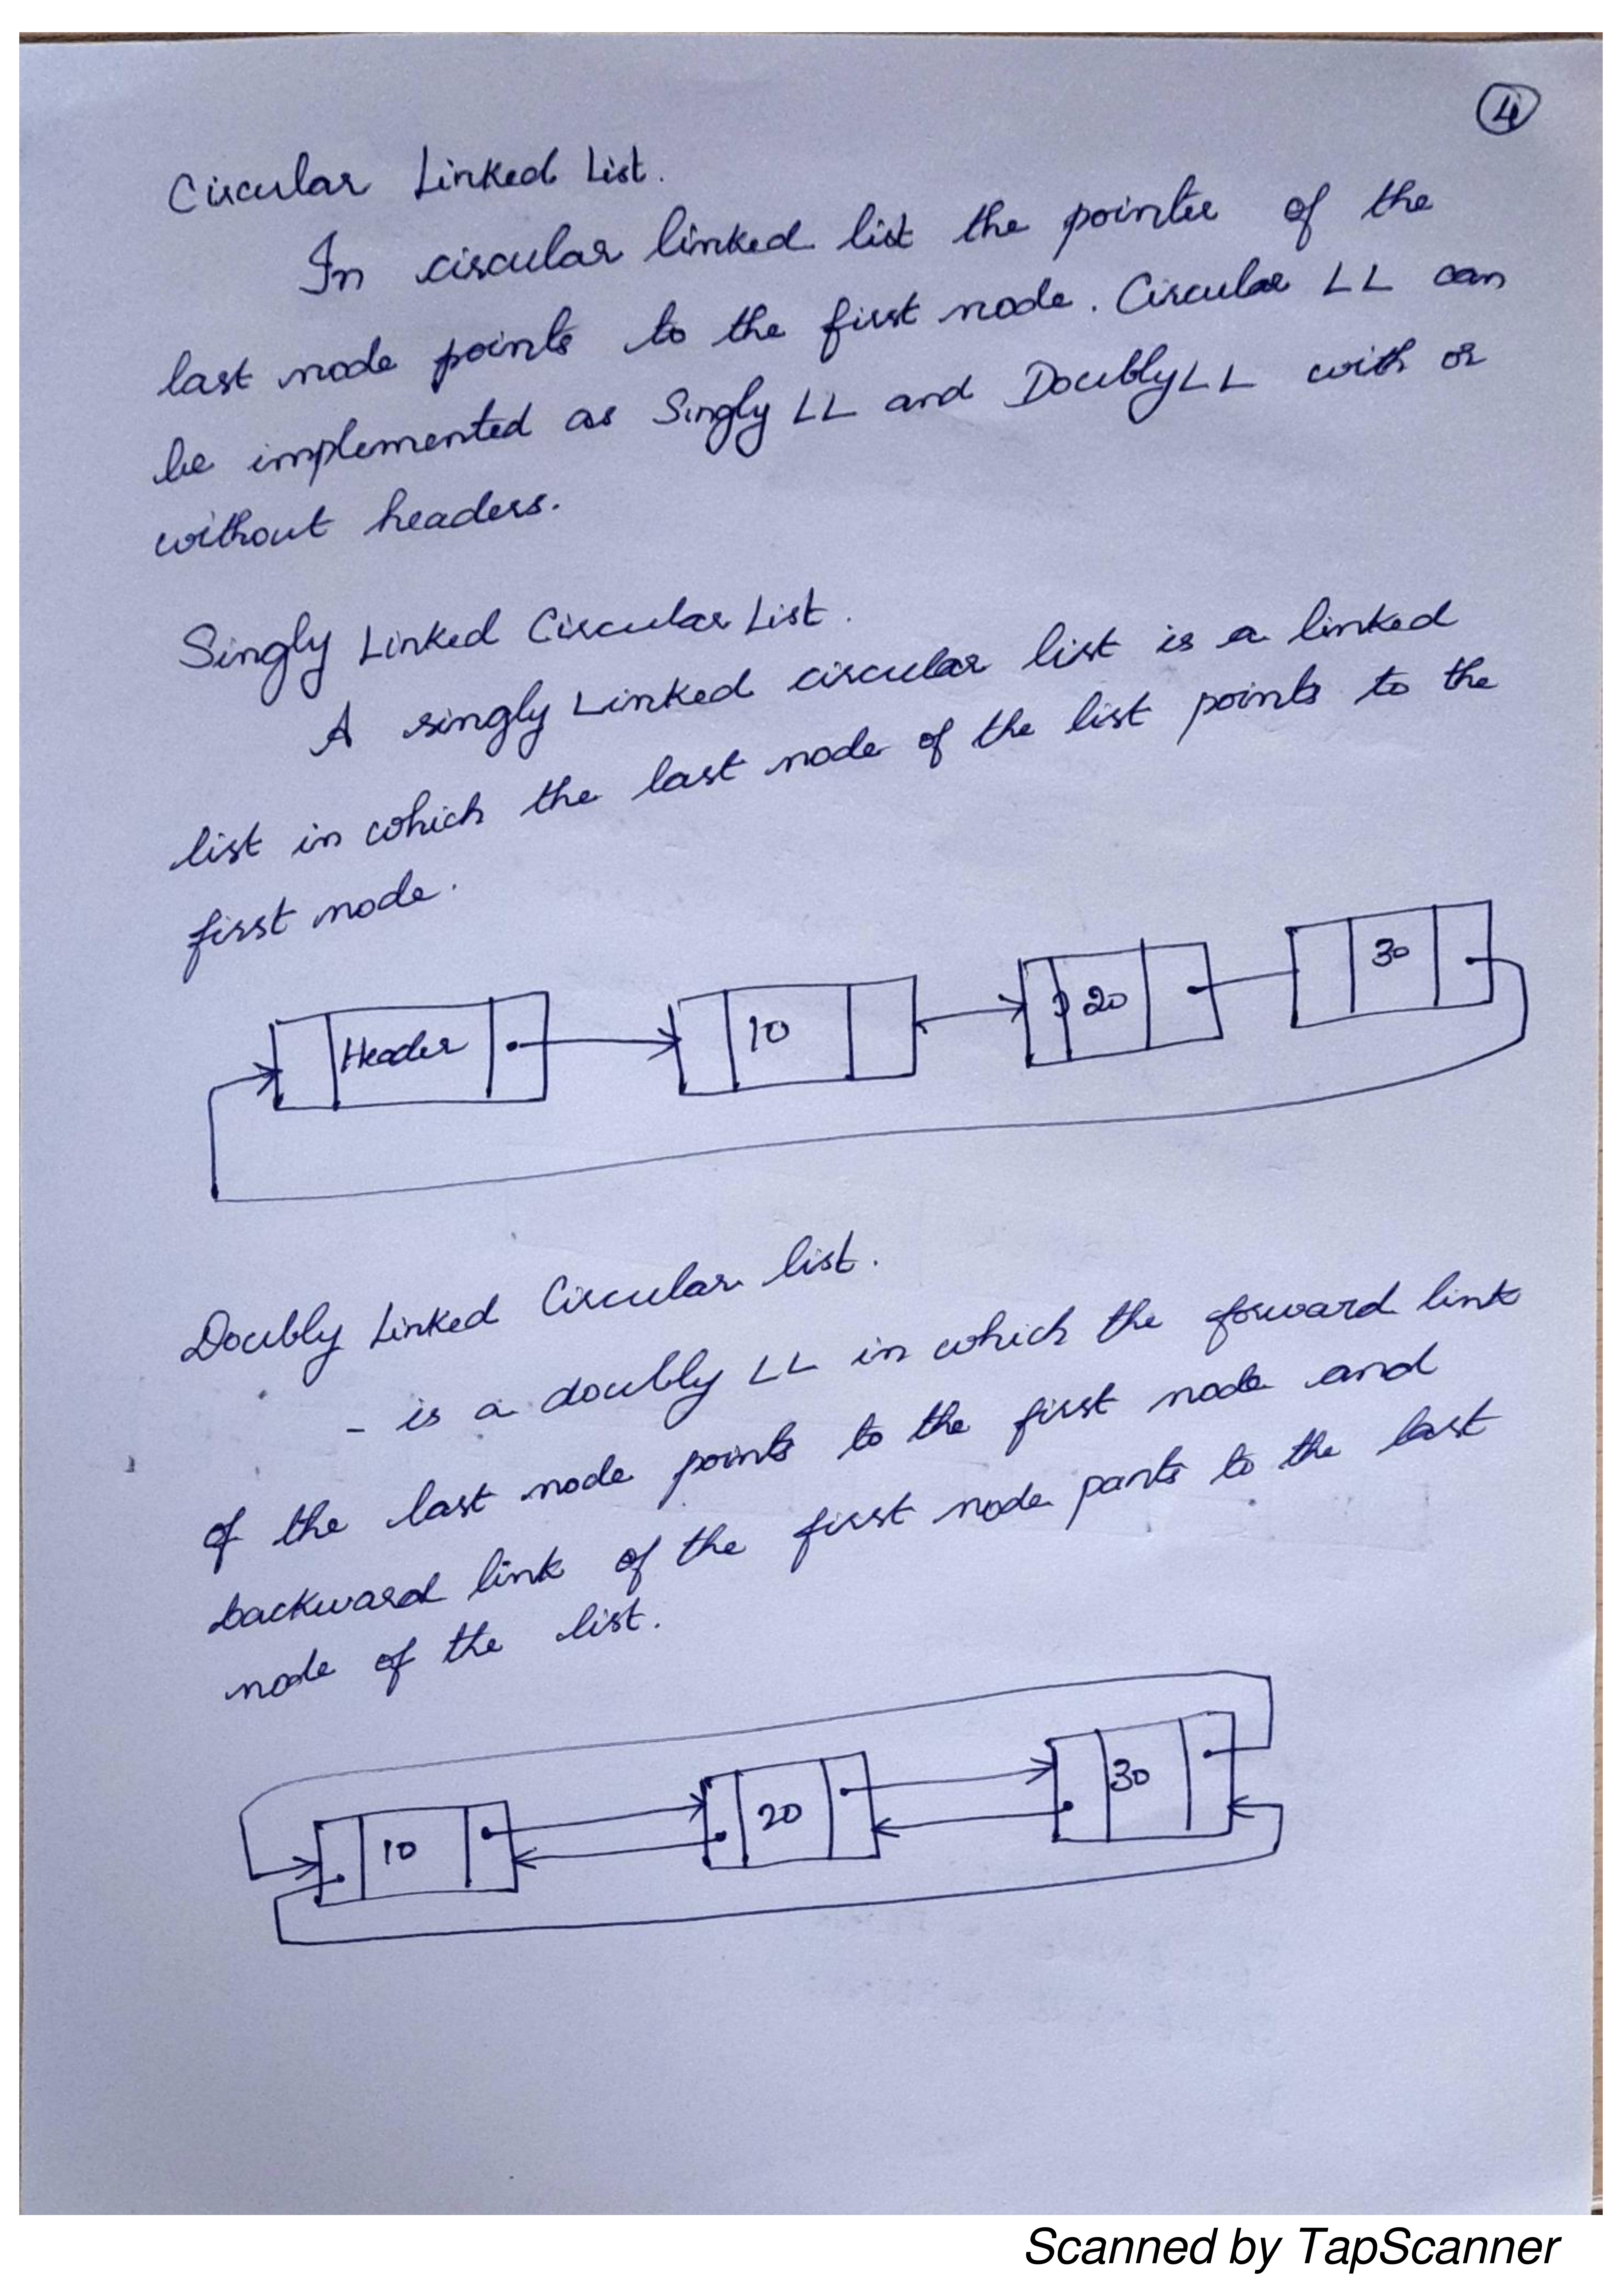 4
Circular Linked List.
In circular linked list the pointer of the
last node points to the first node. Circular LL can
be implemented as Singly LL and Doubly LL with or
without headers.
Singly Linked Circular List.
A singly Linked circular list is a linked
list in which the last node of the list points to the
first node.
Header 10 20 30
Doubly Linked Circular list.
- is a doubly LL in which the forward link
of the last node points to the first node and
backward link of the first node pants to the last
node of the list.
10 20 30
Scanned by TapScanner